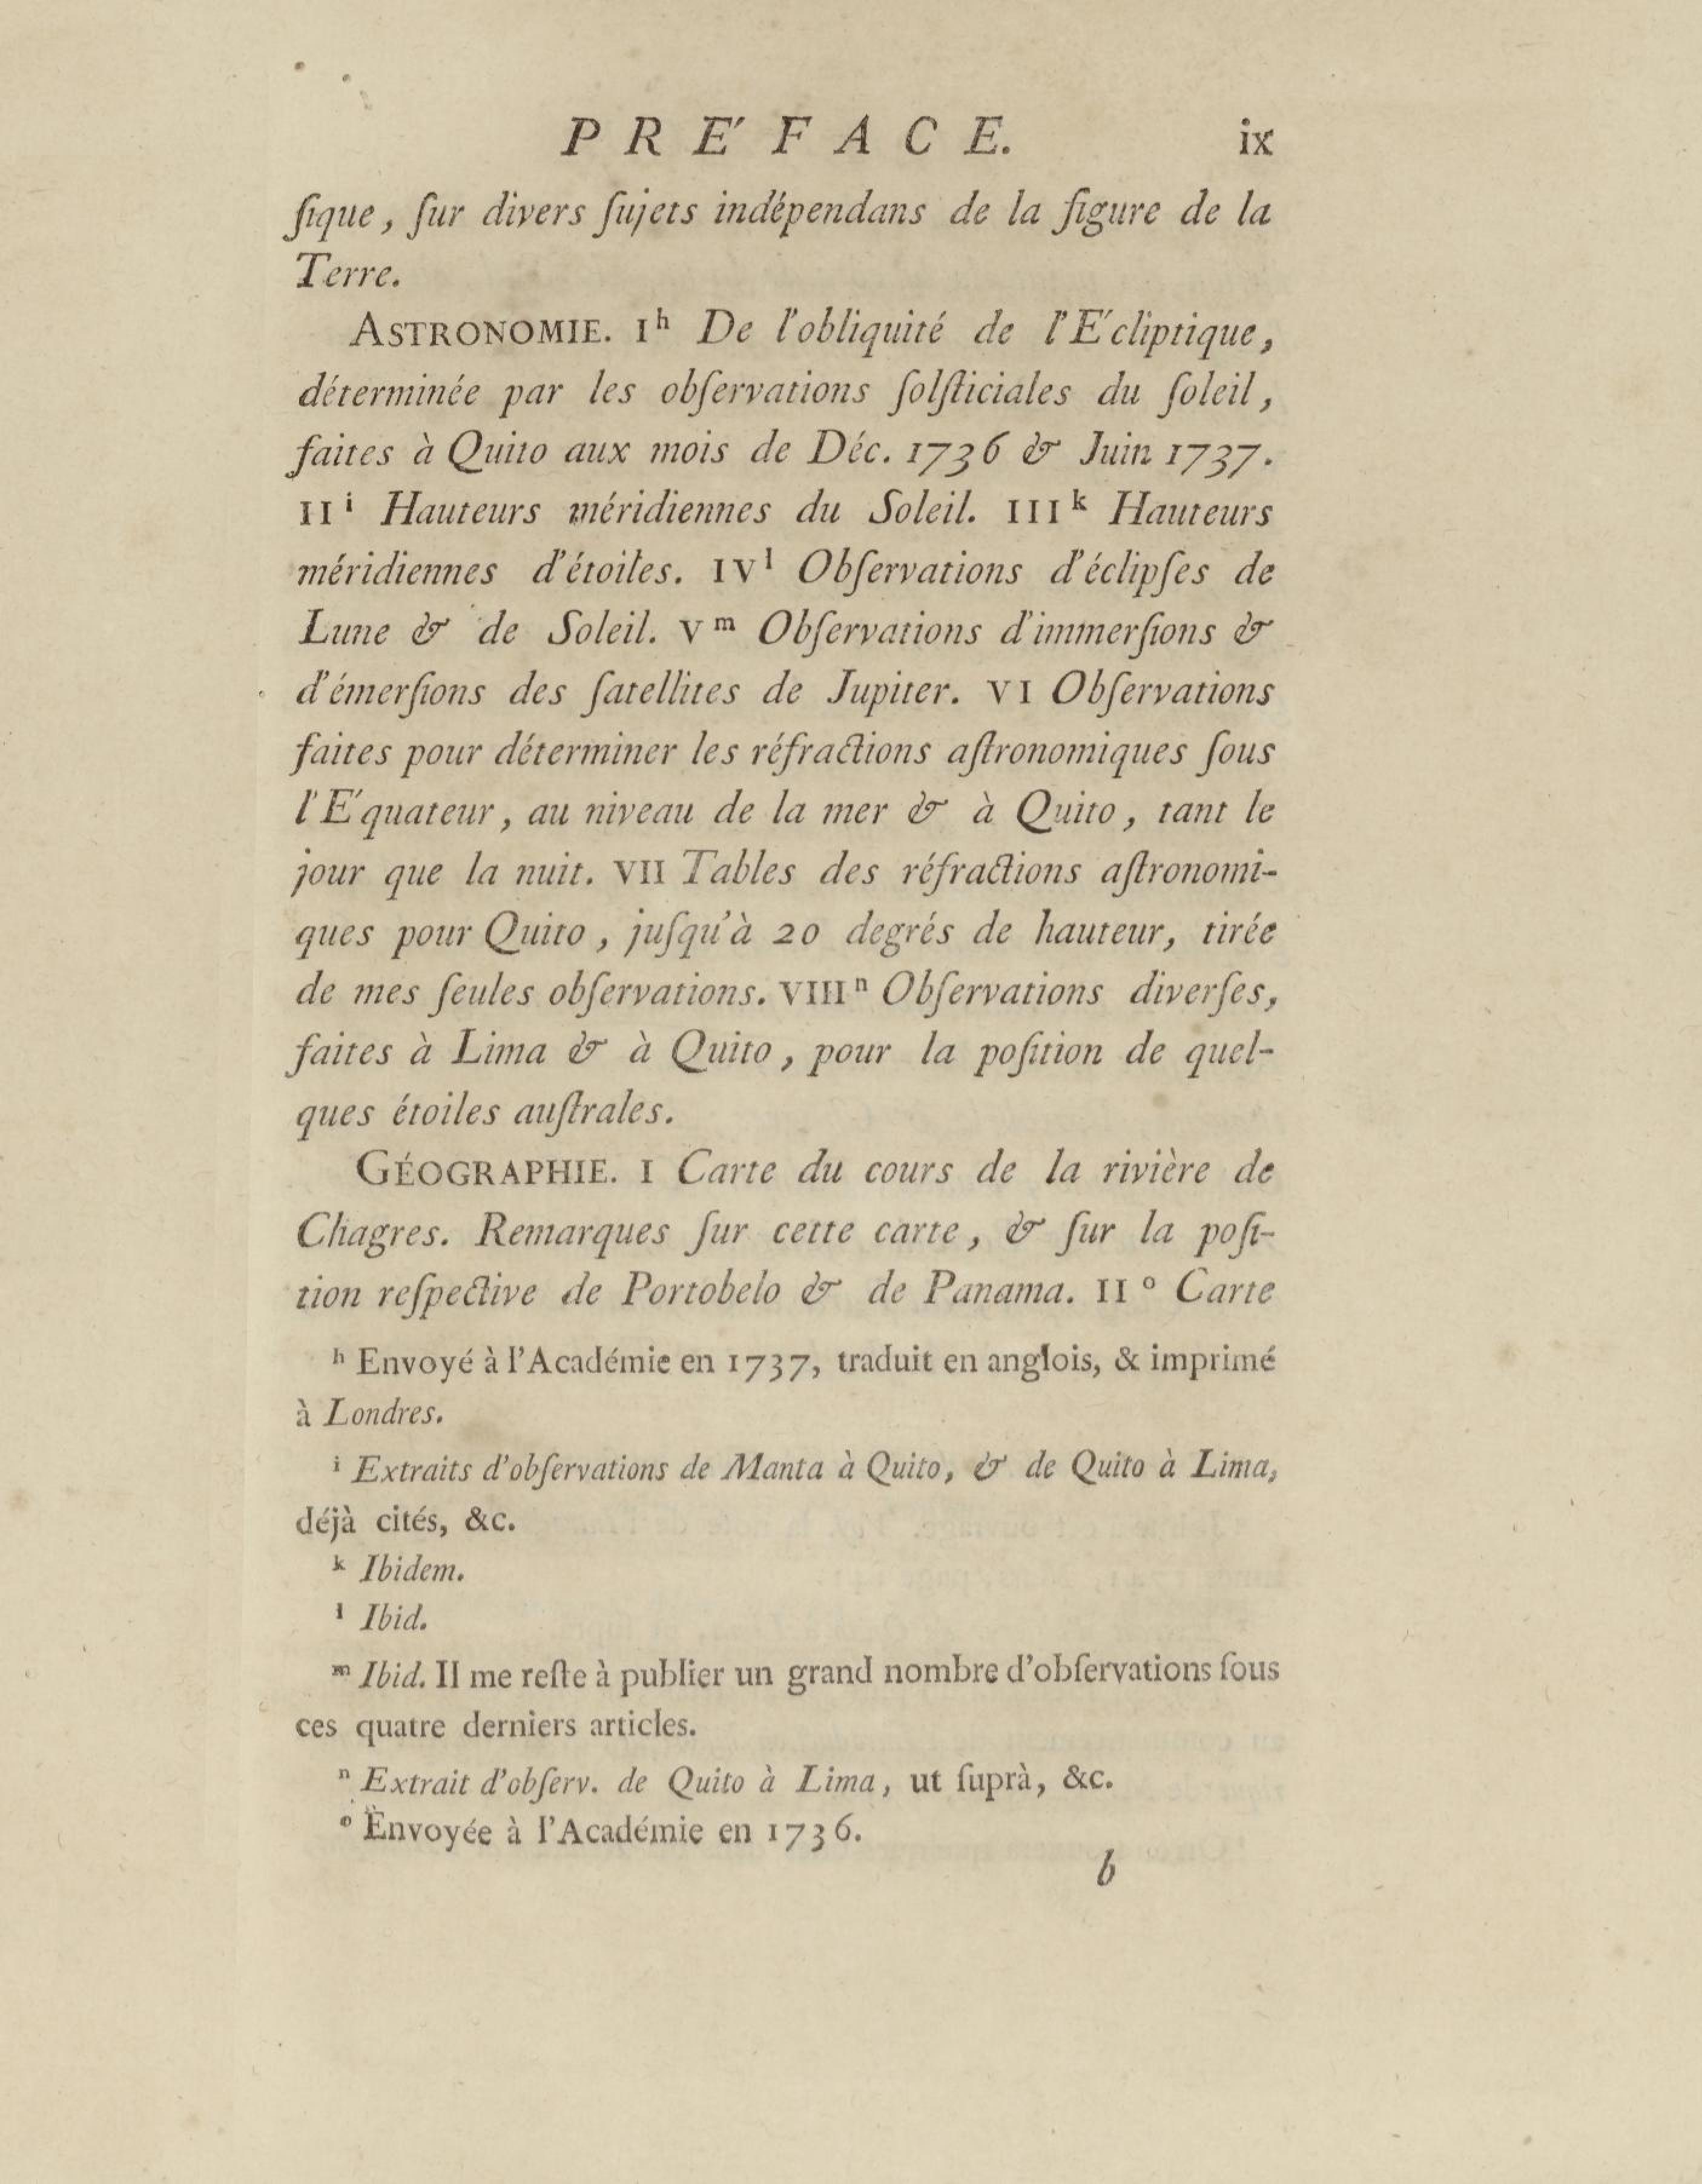 PRÉFACE. ix
ſique, ſur divers ſujets indépendans de la figure de la
Terre.
ASTRONOMIE. I^h De l'obliquité de l'Écliptique,
déterminée par les obſervations ſolſticiales du ſoleil,
faites à Quito aux mois de Déc. 1736 & Juin 1737.
II^i Hauteurs méridiennes du Soleil. III^k Hauteurs
méridiennes d'étoiles. IV^l Obſervations d'éclipſes de
Lune & de Soleil. V^m Obſervations d'immerſions &
d'émerſions des ſatellites de Jupiter. VI Obſervations
faites pour déterminer les réfractions aſtronomiques ſous
l'Équateur, au niveau de la mer & à Quito, tant le
jour que la nuit. VII Tables des réfractions aſtronomi-
ques pour Quito, juſqu'à 20 degrés de hauteur, tirée
de mes ſeules obſervations. VIII^n Obſervations diverſes,
faites à Lima & à Quito, pour la poſition de quel-
ques étoiles auſtrales.
GÉOGRAPHIE. I Carte du cours de la rivière de
Chagres. Remarques ſur cette carte, & ſur la poſi-
tion reſpective de Portobelo & de Panama. II^o Carte
^h Envoyé à l'Académie en 1737, traduit en anglois, & imprimé
à Londres.
^i Extraits d'obſervations de Manta à Quito, & de Quito à Lima,
déjà cités, &c.
^k Ibidem.
^l Ibid.
^m Ibid. Il me reſte à publier un grand nombre d'obſervations ſous
ces quatre derniers articles.
^n Extrait d'obſerv. de Quito à Lima, ut ſuprà, &c.
^o Envoyée à l'Académie en 1736.
b